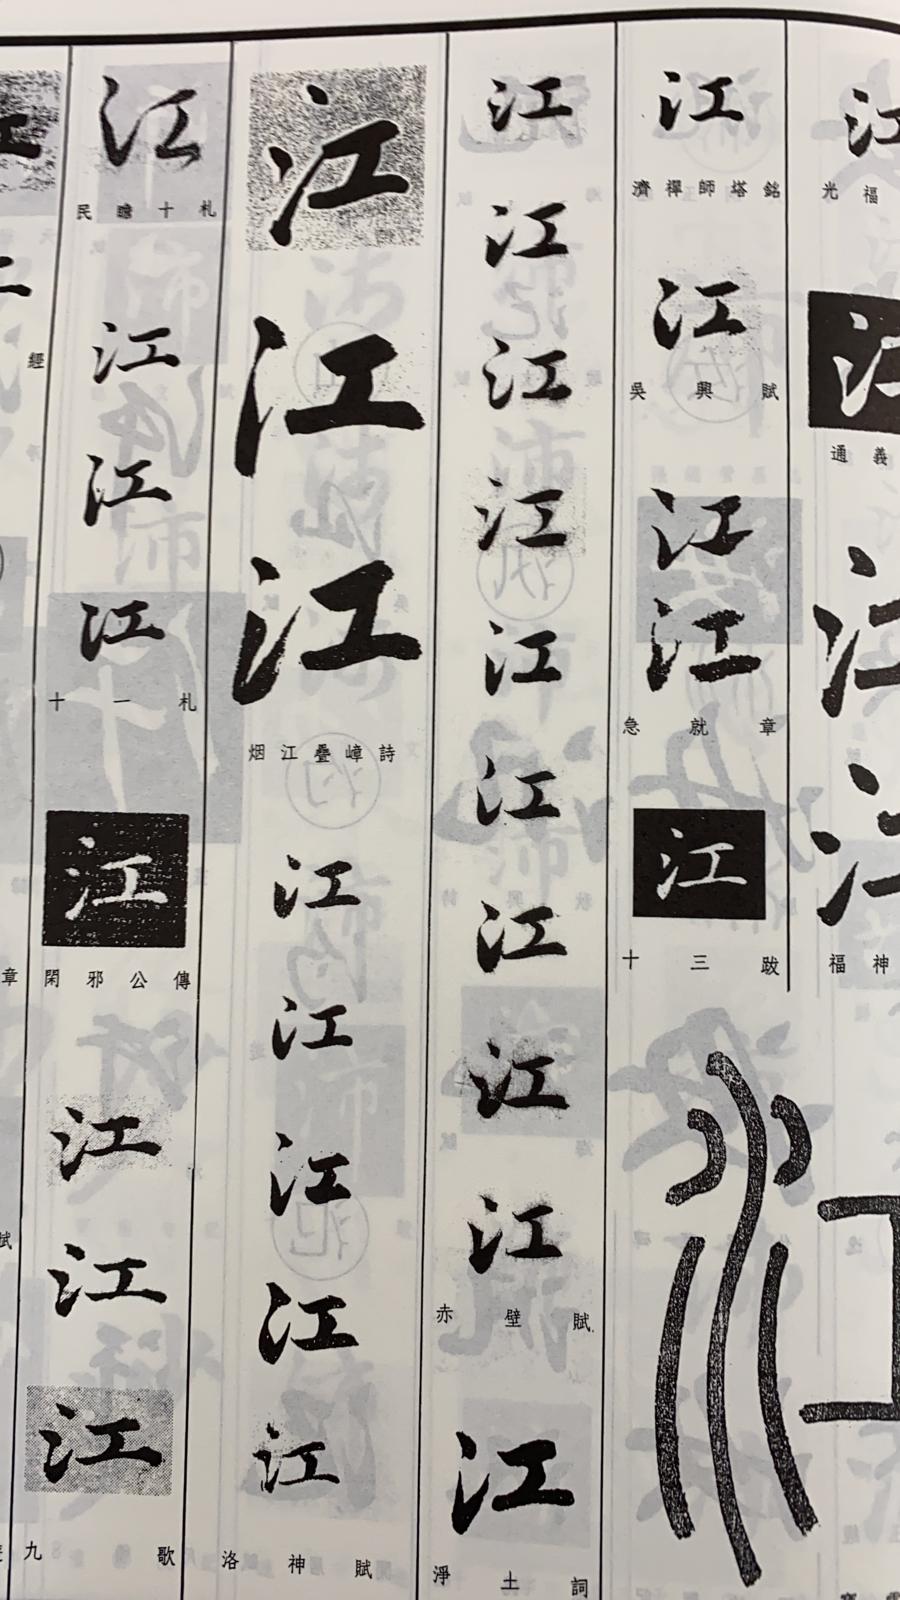 江
光福
江
通義
江
江
福神
江
江
濟禪師塔銘
江
吳興賦
江
江
急就章
江
十三跋
江
江
江
江
江
江
江
江
江
赤壁賦
江
淨土詞
江
江
江
烟江疊嶂詩
江
江
江
江
江
洛神賦
江
民瞻十札
江
江
江
十一札
江
閑邪公傳
江
江
江
九歌
經
章